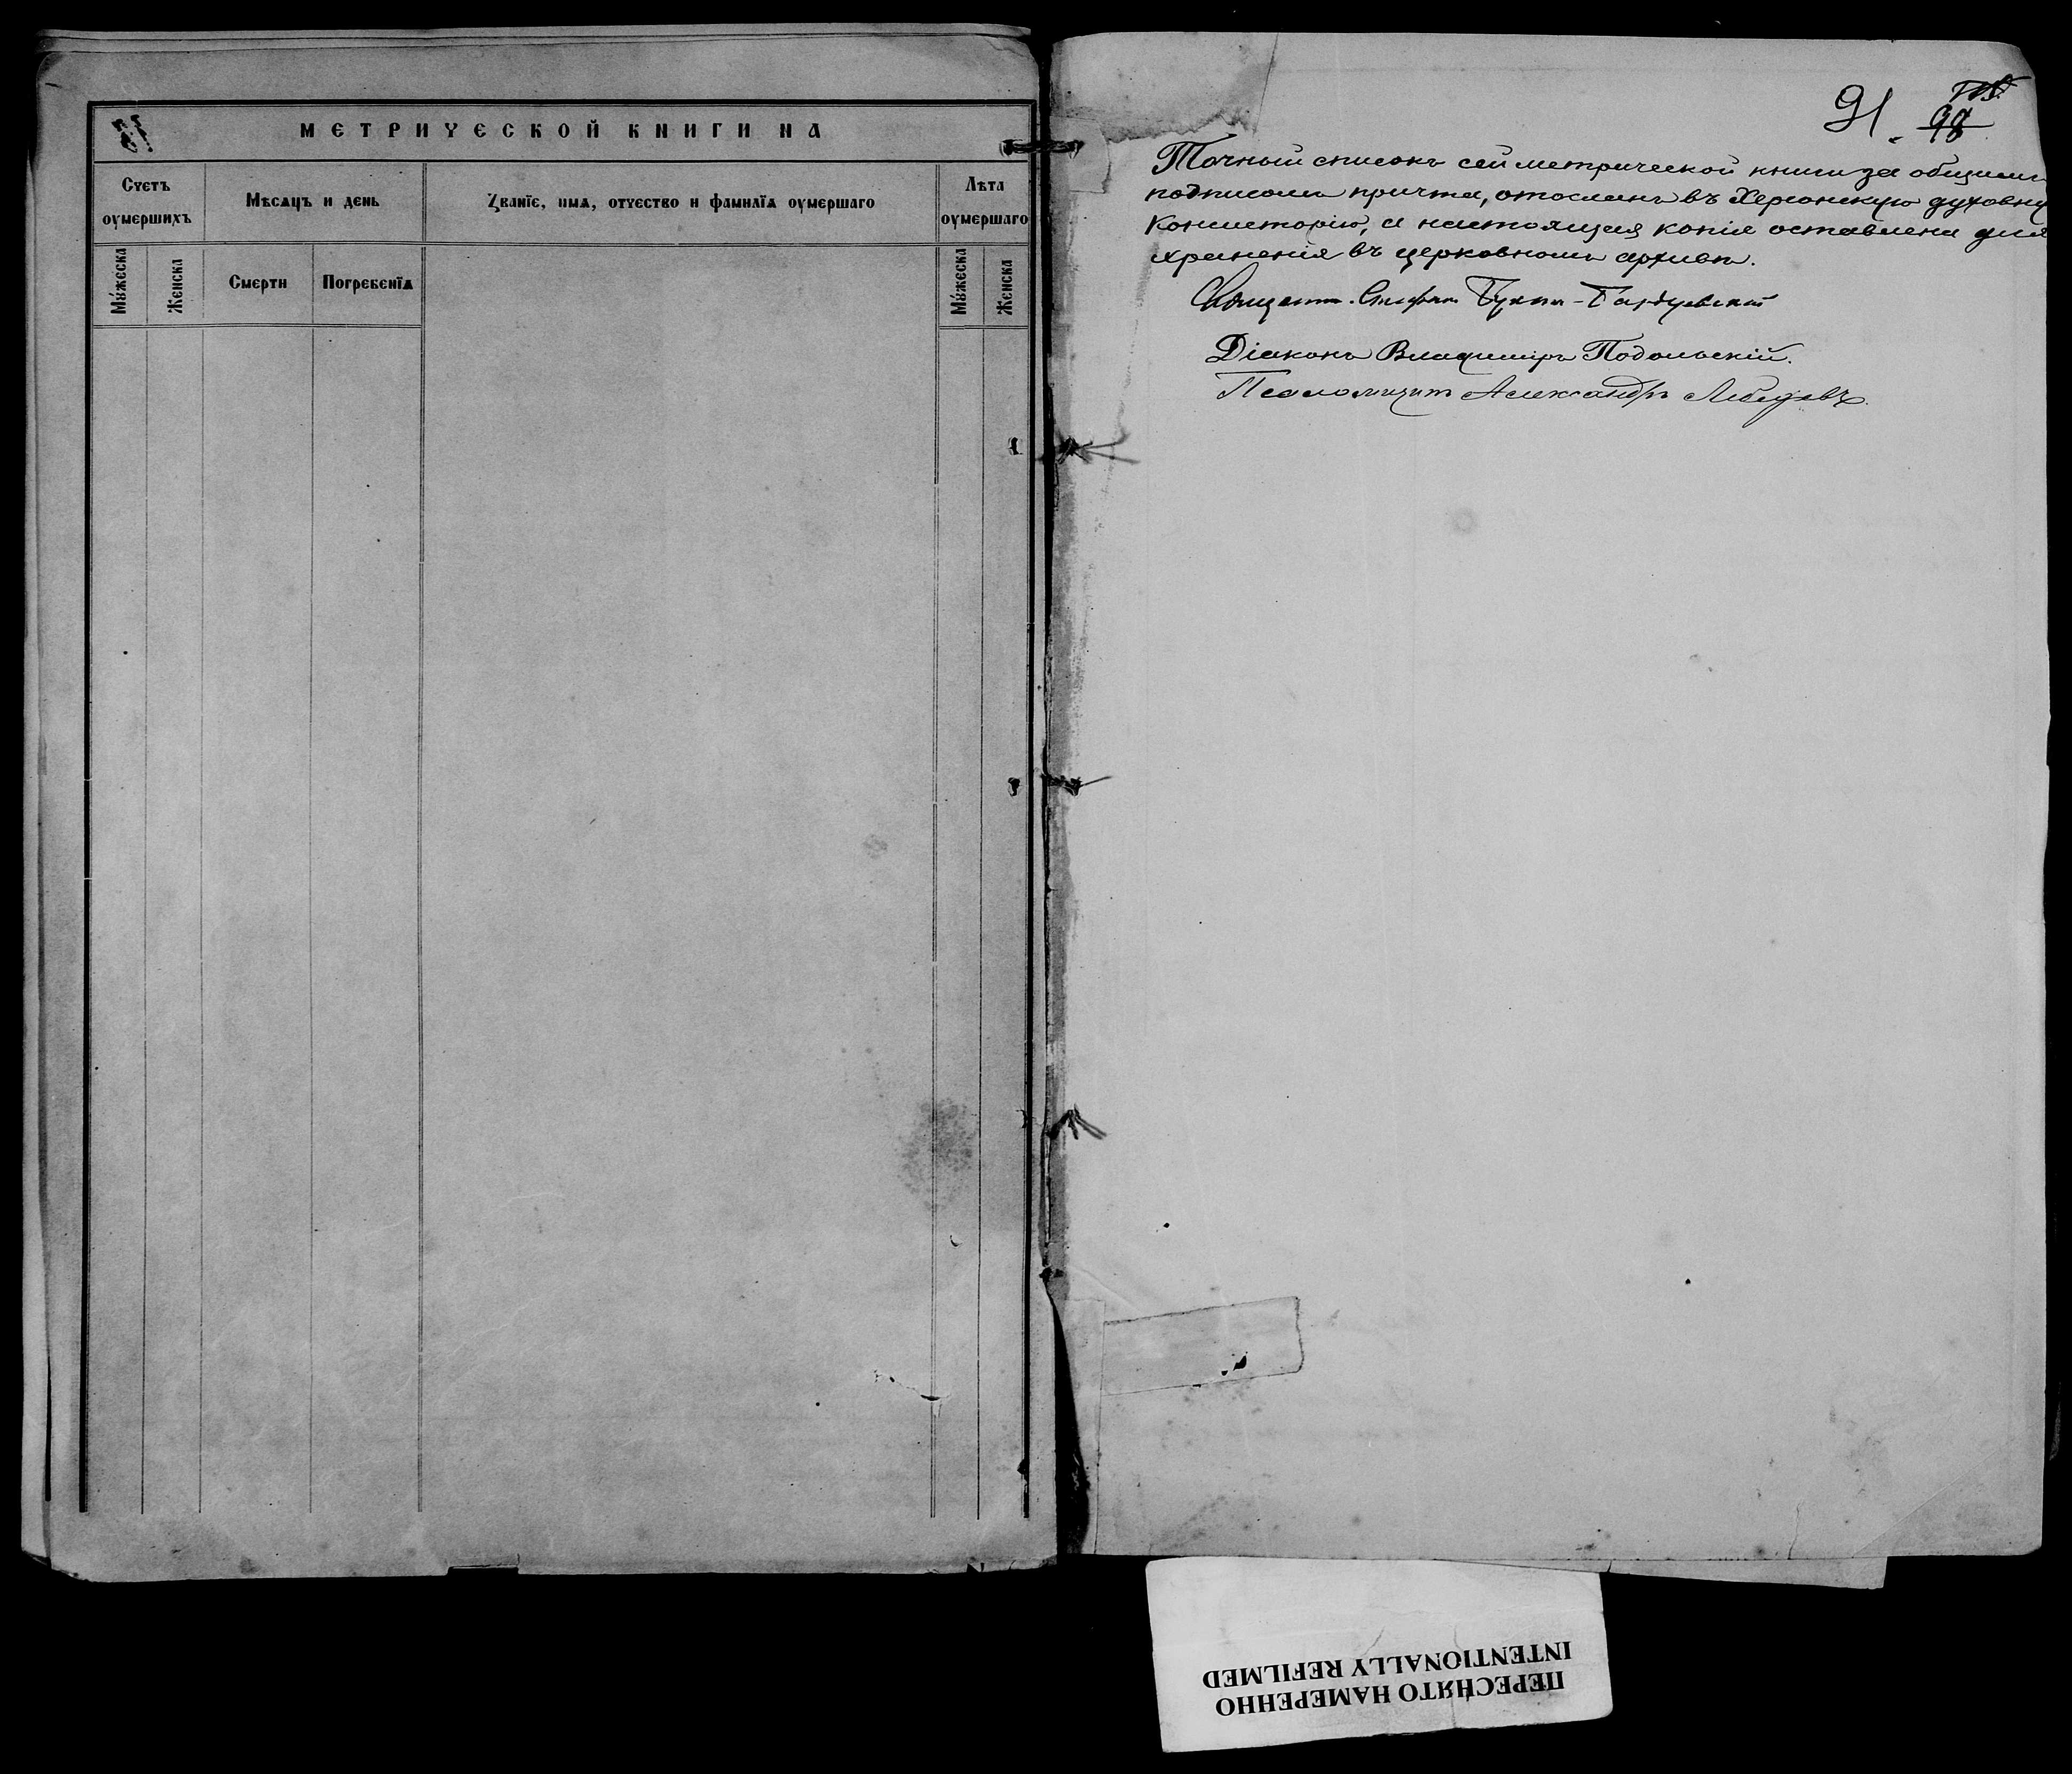 МЕТРИЧЕСКОЙ КНИГИ НА
Счетъ
оумершихъ
Мѣсяцъ и день
Званїе, имя, отчество и фамилїя оумершаго
Лѣта
оумершаго
Мꙋ́жеска
Женска
Смерти
Погребенїя
Мꙋ́жеска
Женска
91
98
Точный списокъ сей метрической книги за общимъ
подписомъ причта, отосланъ въ Херсонскую духовну
Консисторію, а настоящая копія оставлена для
храненія въ церковномъ архивѣ.
Священ. Стефанъ
Діаконъ Владиміръ Подольскій.
Псаломщикъ Александръ Лебедевъ.
ПЕРЕСНЯТО НАМЕРЕННО
INTENTIONALLY REFILMED